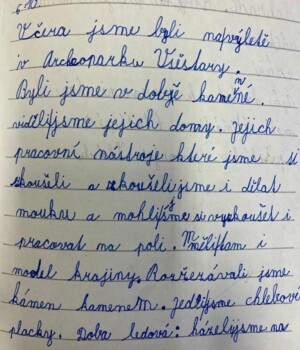 6.10.
Včera jsme byli napvýletě
v Archeoparku Všěstary.
Byli jsme v době kamené.
vidělijsme jejich domy. jejich
pracovní nástroje které jsme si
skoušeli a zkoušelijsme i dělat
mouku a mohlijsme si vyskoušet i
pracovat na poli. Mělitam i
model krajiny. Rozřezávali jsme
kámen kamenem. Jedlijsme chlebové
placky. Doba ledová: házelijsme na